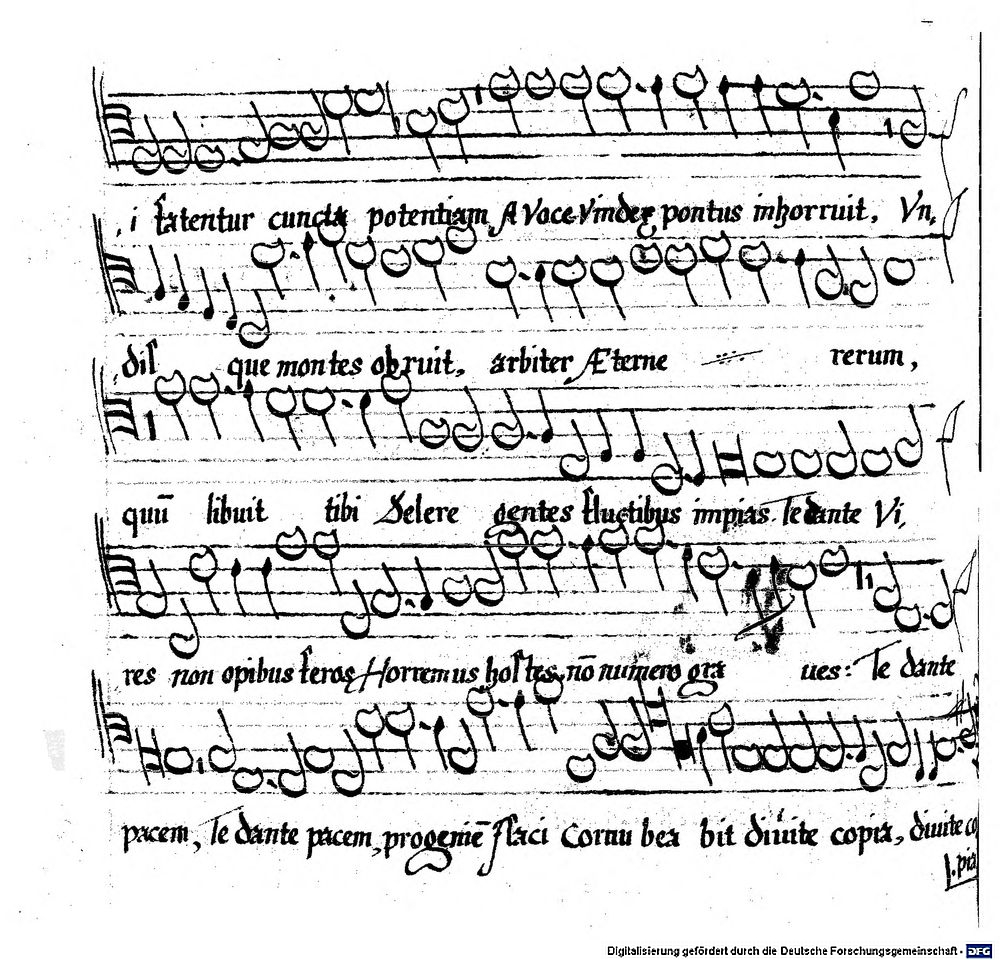 i fatentur cuncta potentiam A Voce Vindex pontus inhorruit, Vn,
disque montes obruit, arbiter Æterne rerum,
quũ libuit tibi Delere gentes fluctibus impias. Te dante Vi,
res non opibus feros Horremus hostes, nõ numero graues: Te dante
pacem, Te dante pacem, progeniẽ flaci Cornu beabit diuite copia, diuite co
pia
Digitalisierung gefördert durch die Deutsche Forschungsgemeinschaft - DFG